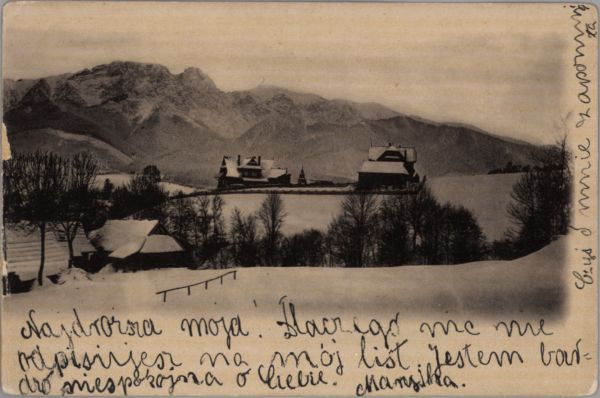 Najdrorsza moja! Dlaczego nic nie
odpisujesz na mój list Jestem bar-
dzo niespokojna o Ciebie. Maryśka.
Czyś ó mnie zapomnia
ła